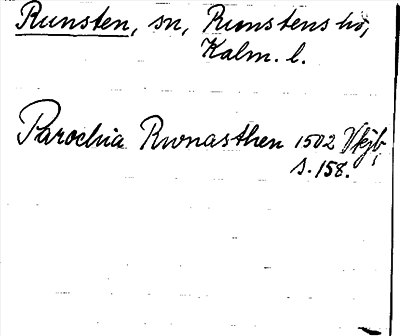 Runsten, sn, Runstens hd,
Kalm. l.
Parochia Rwnasthen 1502 Vkjb,
s. 158.